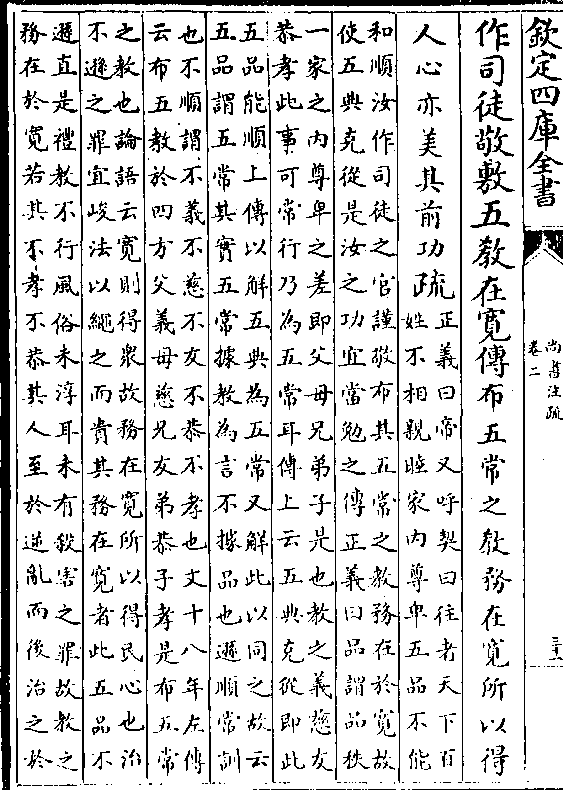 欽定四庫全書
尚書注疏
卷二
作司徒敬敷五教在寛傳布五常之教務在寛所以得
人心亦美其前功疏
正義曰帝又呼契曰往者天下百
姓不相親睦家内尊卑五品不能
和順汝作司徒之官謹敬布其五常之教務在於寛故
使五典克從是汝之功宜當勉之傳正義曰品謂品秩
一家之内尊卑之差即父母兄弟子是也教之義慈友
恭孝此事可常行乃為五常耳傳上云五典克從即此
五品能順上傳以解五典為五常又解此以同之故云
五品謂五常其實五常據教為言不據品也遜順常訓
也不順謂不義不慈不友不恭不孝也文十八年左傳
云布五教於四方父義母慈兄友弟恭子孝是布五常
之教也論語云寛則得衆故務在寛所以得民心也治
不遜之罪宜峻法以繩之而貴其務在寛者此五品不
遜直是禮教不行風俗未淳耳未有殺害之罪故教之
務在於寛若其不孝不恭其人至於逆亂而後治之於